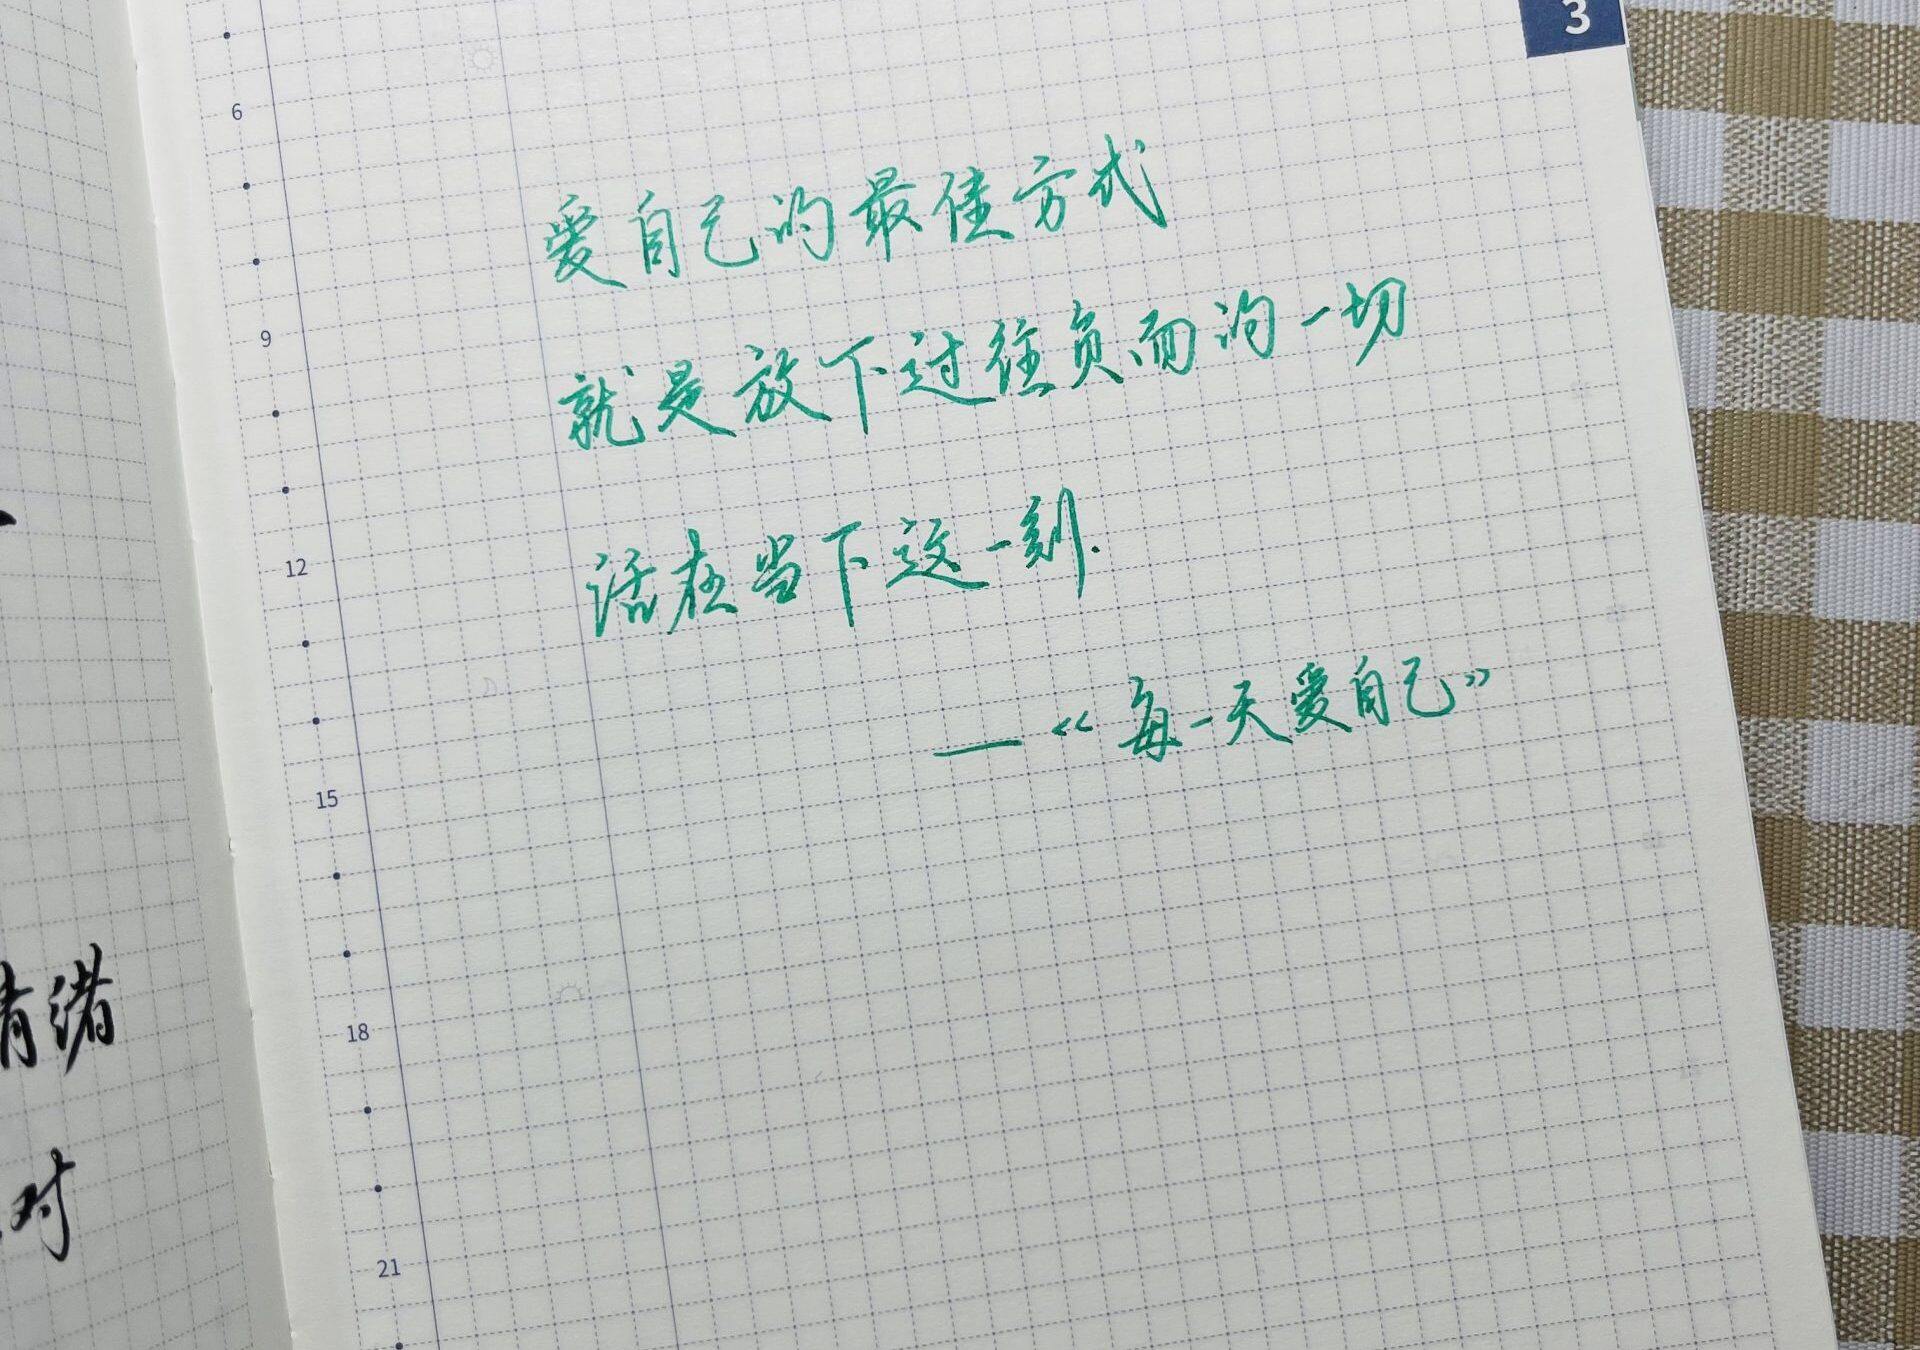 3
6
9
12
15
18
21
爱自己的最佳方式
就是放下过往负面的一切
活在当下这一刻.
——《每一天爱自己》
绪
对